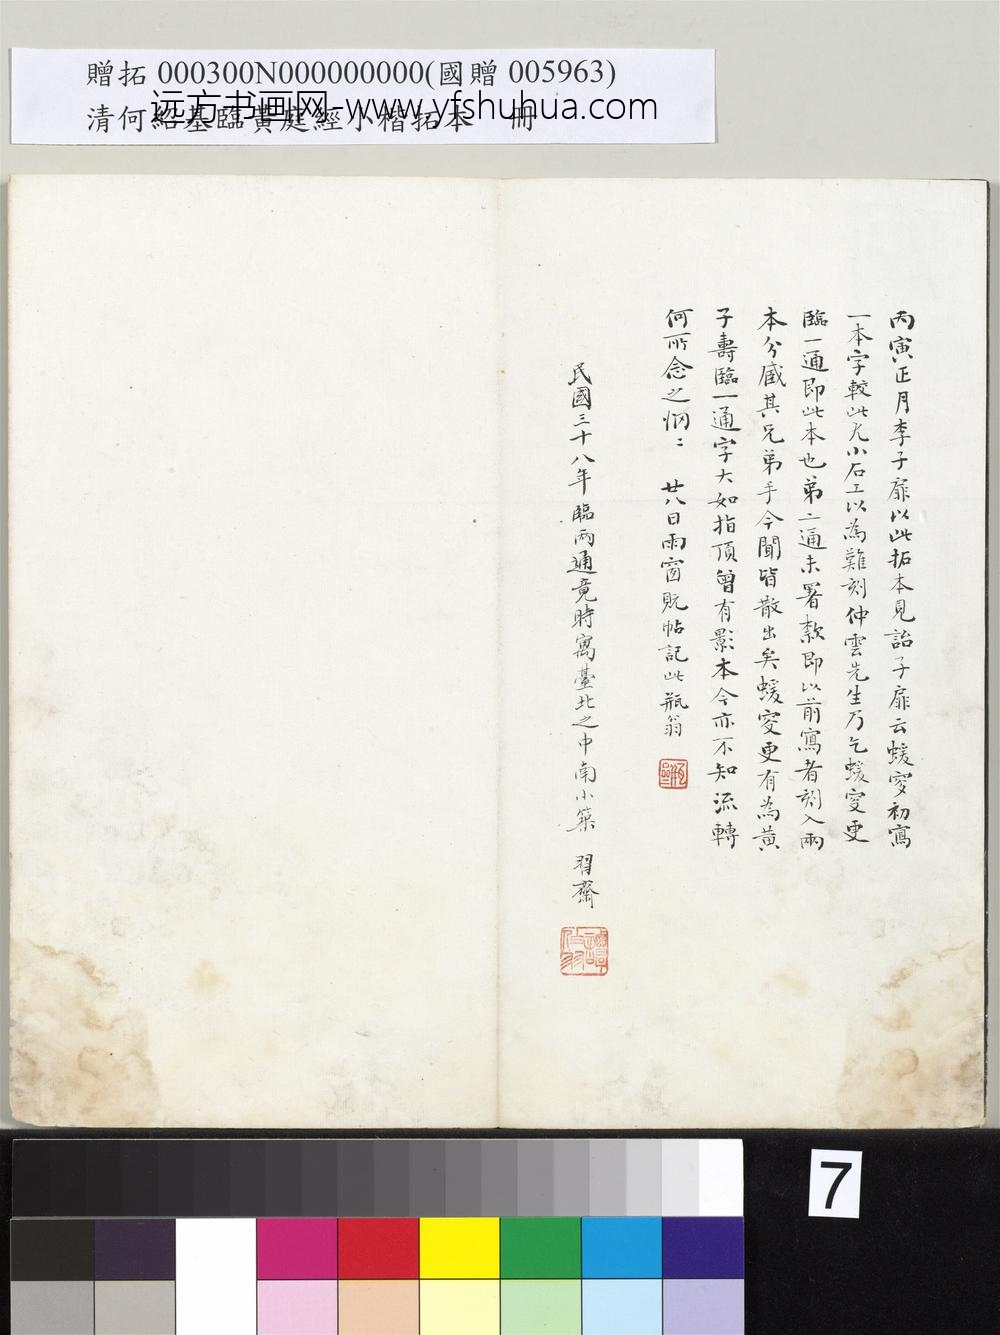 贈拓 000300N000000000(國贈 005963)
清何紹基臨黃庭經小楷拓本 冊
远方书画网-www.yfshuhua.com
丙寅正月李子靡以此拓本見詒子靡云蝯叟初寫
一本字較此尤小石工以為難刻仲雲先生乃乞蝯叟更
臨一通即此本也弟二通未署款即以前寫者刻入兩
本分臧其兄弟手今聞皆散出矣蝯叟更有為黃
子壽臨一通字大如指頂曾有影本今亦不知流轉
何所念之惘〻 廿八日雨窗翫帖記此瓶翁
民國三十八年臨兩通竟時寓臺北之中南小築 習齋
7